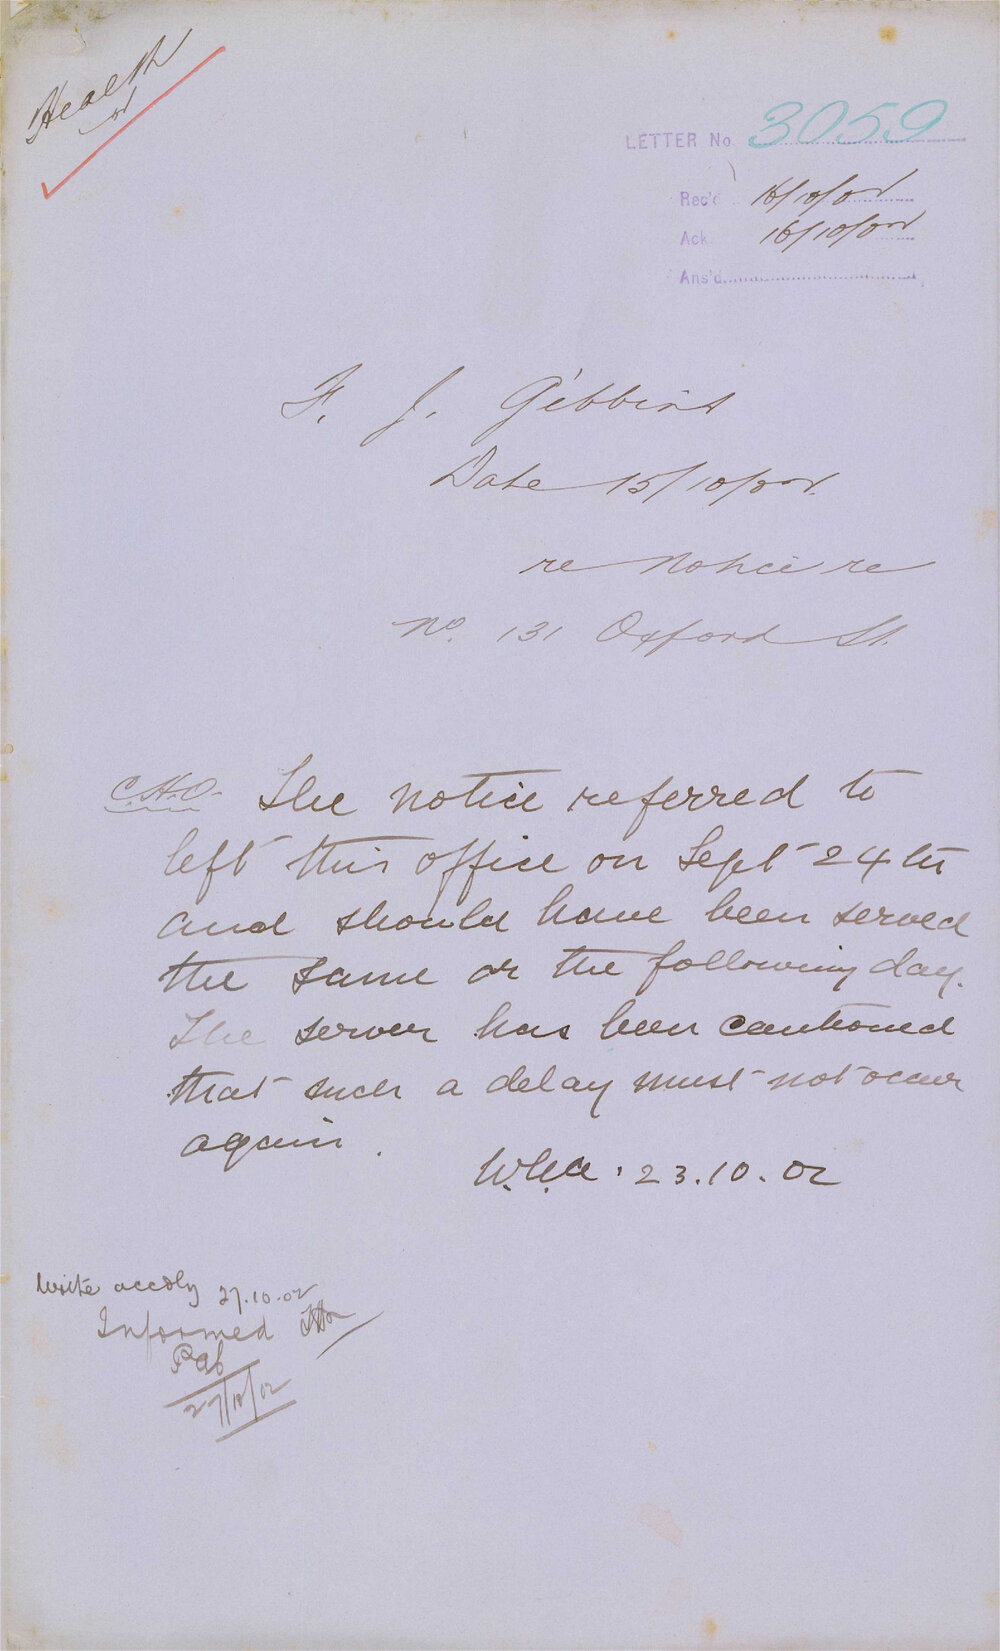 Health
LETTER No 3059
Rec'd 16/10/02
Ack 16/10/02
Ans'd
F. J. Gibbins
Date 15/10/02.
re Notice re
No. 131 Oxford St.
C.H.O. The notice referred to
left this office on Sept 24th
and should have been served
the same or the following day.
The server has been cautioned
that such a delay must not occur
again.
23.10.02
Write accdly 27.10.02
Informed
27/10/02